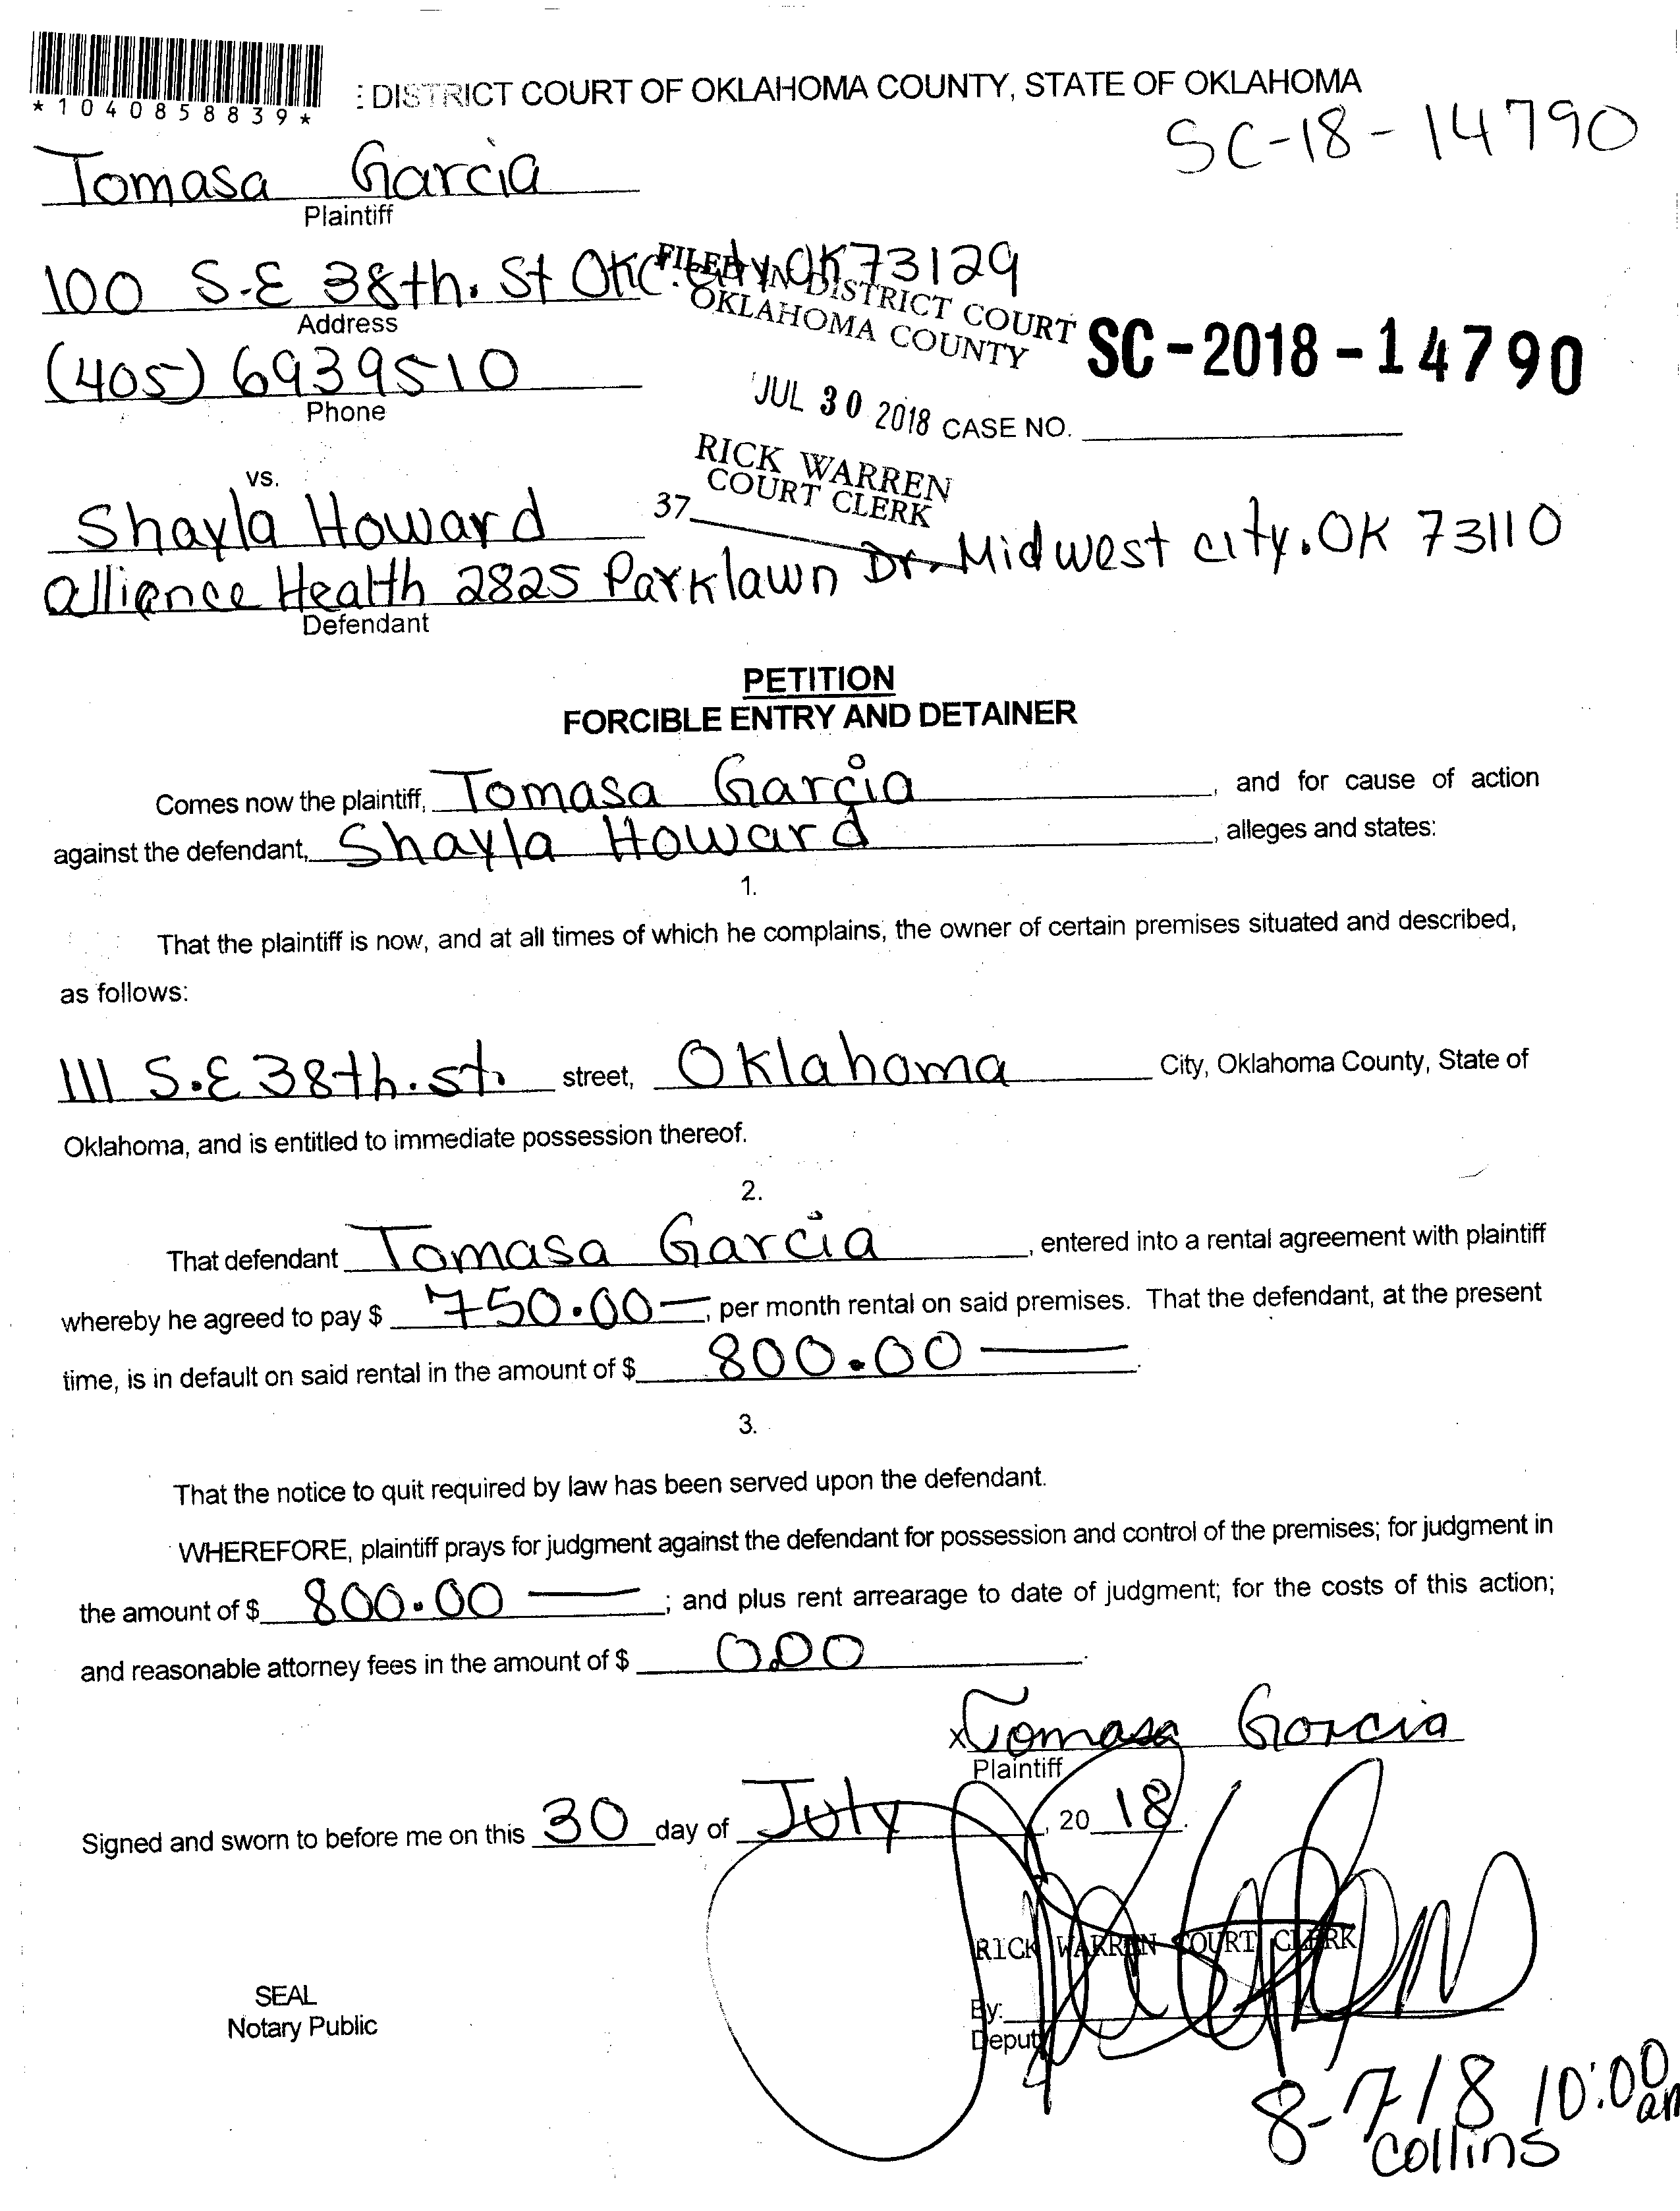 *1040858839*
DISTRICT COURT OF OKLAHOMA COUNTY, STATE OF OKLAHOMA
SC-18-14790
Tomasa Garcia
Plaintiff
100 S.E 38th. St OKC. City OK 73129
Address
FILED IN DISTRICT COURT
OKLAHOMA COUNTY
SC-2018-14790
(405) 6939510
Phone
JUL 30 2018
CASE NO.
RICK WARREN
COURT CLERK
37
vs.
Shayla Howard
alliance Health 2825 Parklawn Dr. Midwest city. OK 73110
Defendant
PETITION
FORCIBLE ENTRY AND DETAINER
Comes now the plaintiff, Tomasa Garcia, and for cause of action
against the defendant, Shayla Howard, alleges and states:
1.
That the plaintiff is now, and at all times of which he complains, the owner of certain premises situated and described,
as follows:
111 S.E 38th. st. street, Oklahoma City, Oklahoma County, State of
Oklahoma, and is entitled to immediate possession thereof.
2.
That defendant Tomasa Garcia, entered into a rental agreement with plaintiff
whereby he agreed to pay $ 750.00—, per month rental on said premises. That the defendant, at the present
time, is in default on said rental in the amount of $ 800.00—.
3.
That the notice to quit required by law has been served upon the defendant.
WHEREFORE, plaintiff prays for judgment against the defendant for possession and control of the premises; for judgment in
the amount of $ 800.00—; and plus rent arrearage to date of judgment; for the costs of this action;
and reasonable attorney fees in the amount of $ 0.00.
x Tomasa Garcia
Plaintiff
Signed and sworn to before me on this 30 day of July, 20 18.
RICK WARREN COURT CLERK
SEAL
Notary Public
By:
Deputy
8-7-18 10:00 am
Collins